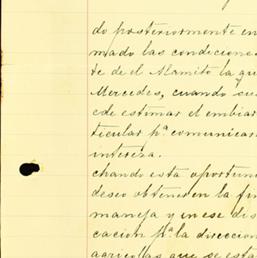 do posteriormente en
mado las condicione
te de el Mamito la qu
Mercedes, cuando su
cde estimar el embiar
ticular pª comunicar
intereza.
chando esta oportun
deseo obtener en la fin
maneja y un ese dis
cacion pª la direccion
agricolas que se esta